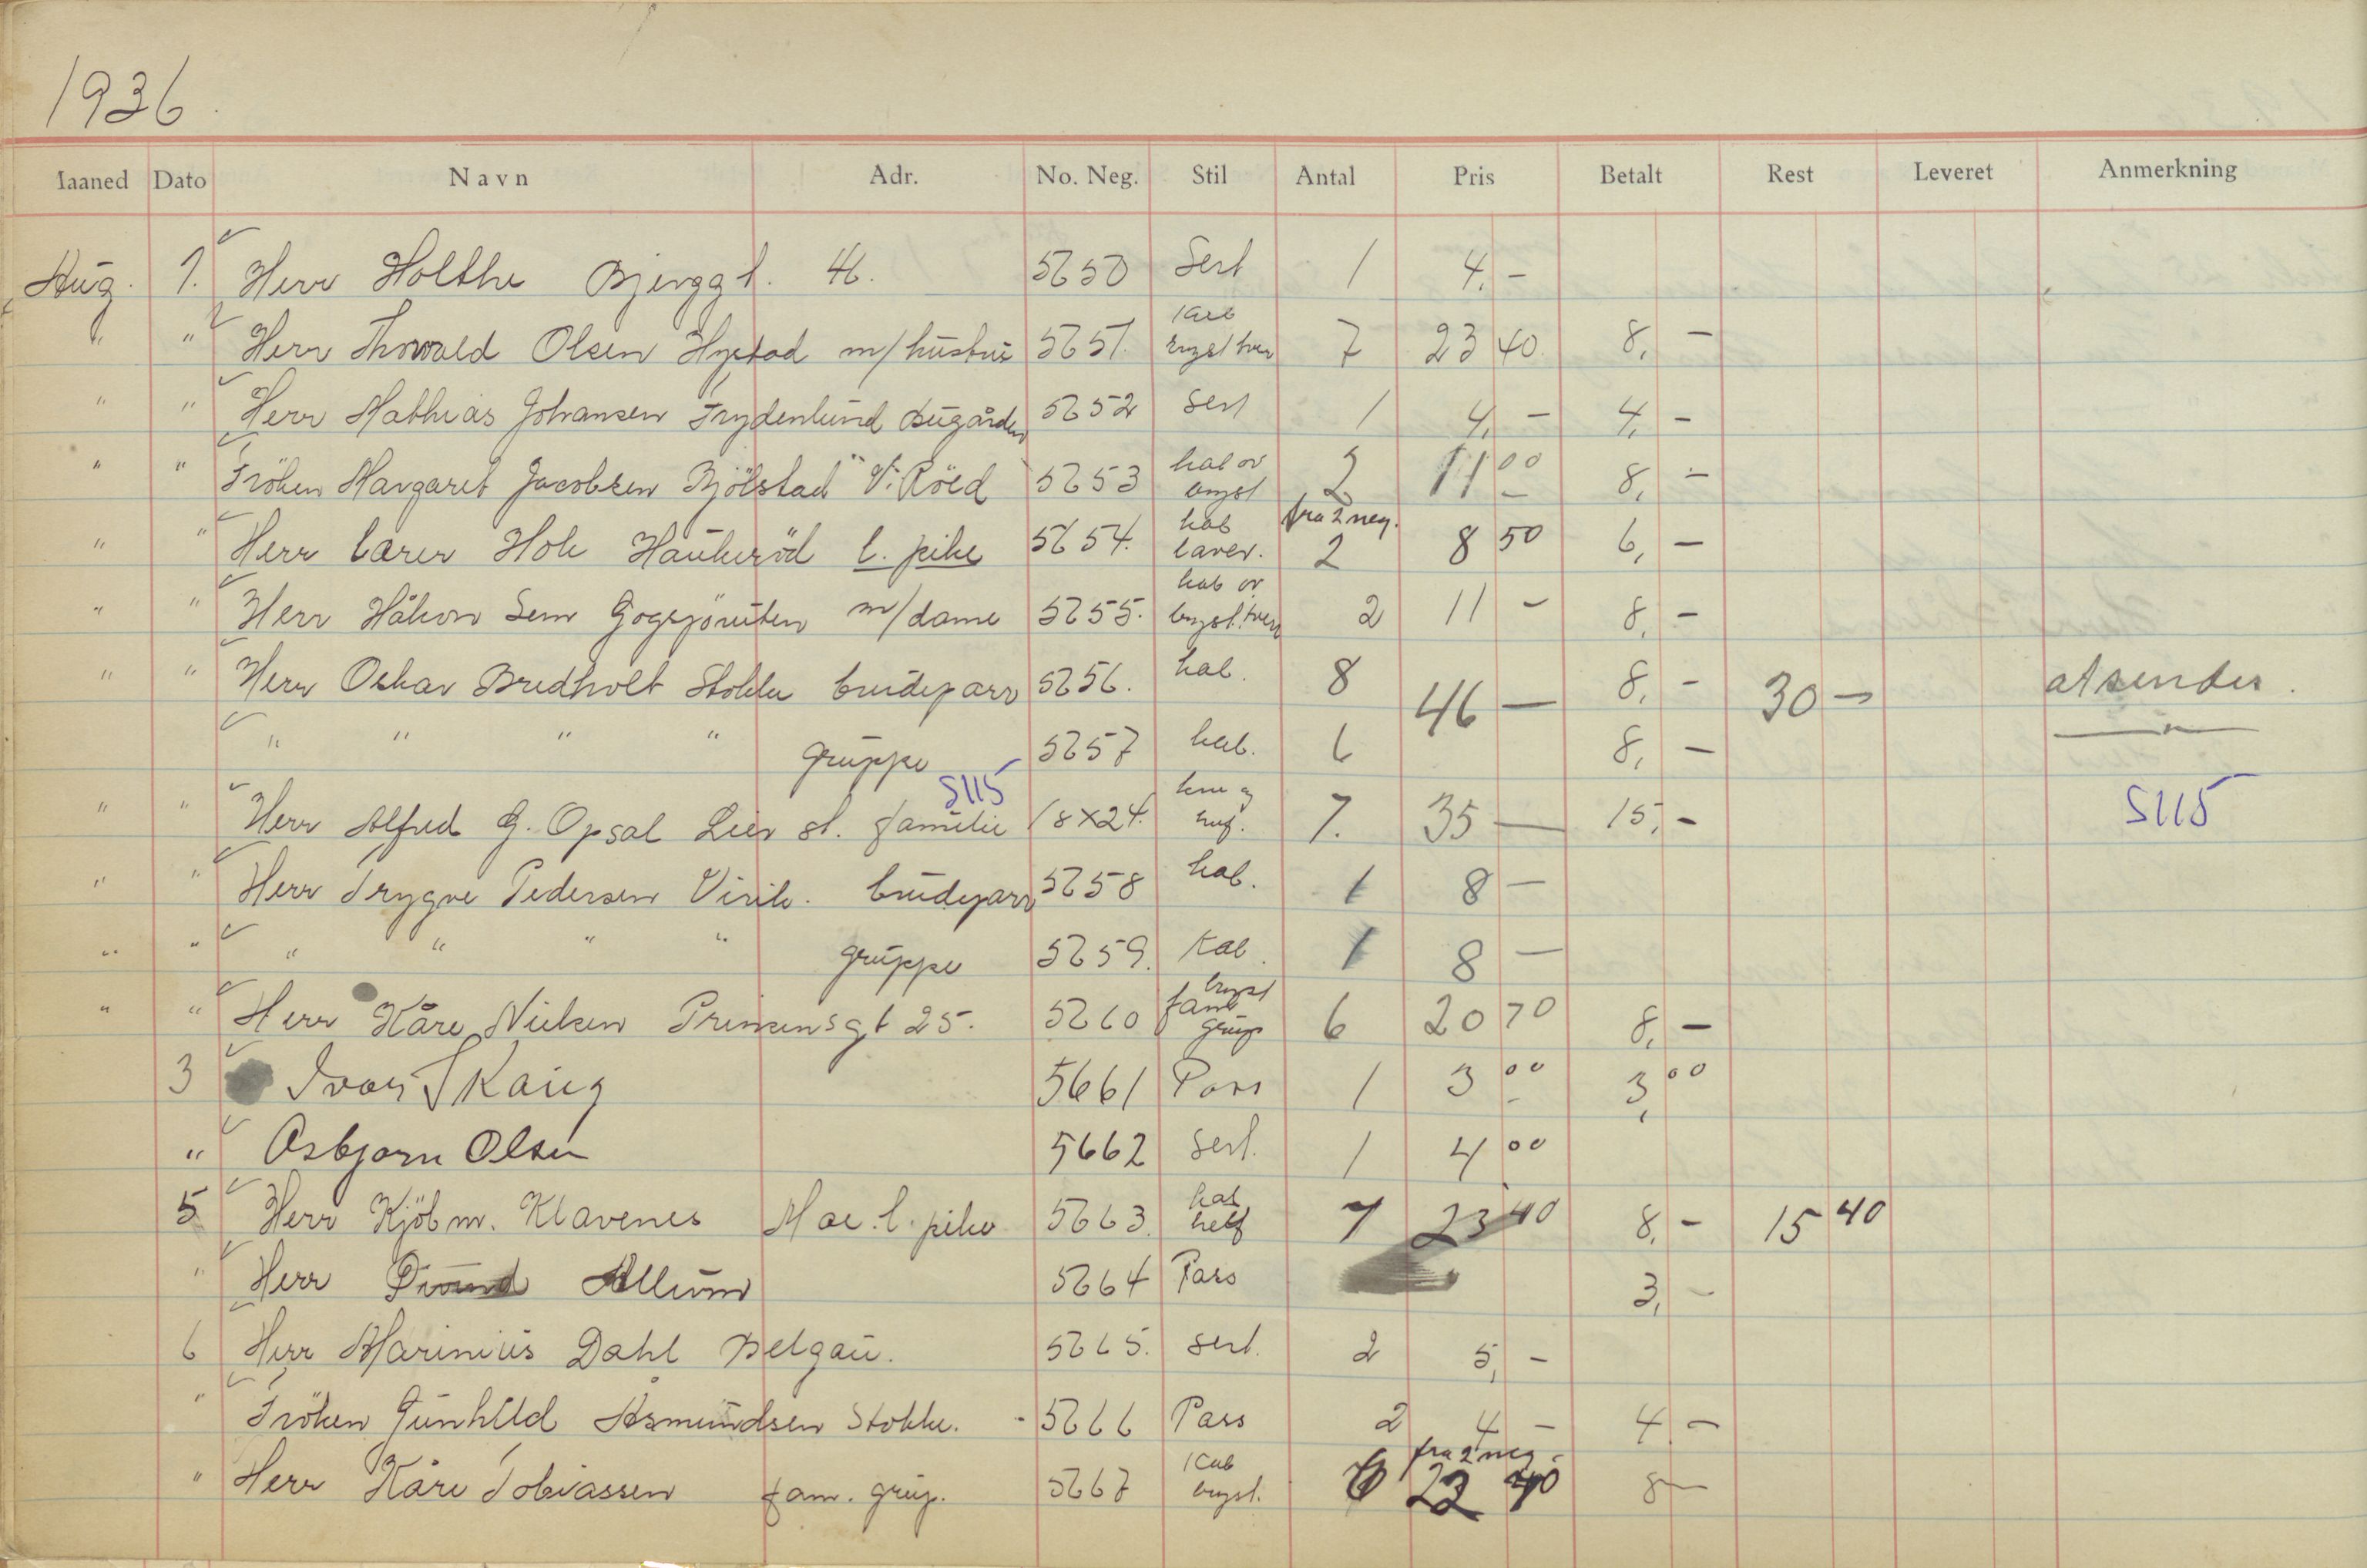 1936
Iaaned Dato Navn Adr. No. Neg. Stil Antal Pris Betalt Rest Leveret Anmerkning
Aug. 1. Herr Holthe Bjerggt. 46. 5650 Sert 1 4,-
" " Herr Thorvald Olsen Hystad m/hustru 5651. Kab bryst tver 7 23 40 8,-
" " Herr Mathias Johansen Frydenlund Bugården 5652 Sert 1 4,- 4,-
" " Fröken Margaret Jacobsen Bjölstad V. Röed 5653 kab ov bryst 2 11 00 8,-
" " Herr lærer Hok Haukeröd l. pike 5654. kab laver. fra 2 neg. 2 8 50 6,-
" " Herr Håkon Sem Gogsjöruten m/dame 5655. kab ov bryst. tver 2 11 - 8,-
" " Herr Oskar Bredholt Stokke brudepar 5656. kab. 8 46 - 8,- 30 - atsendes.
" " " " gruppe 5657 kab. 6 8,-
" " Herr Alfred G. Opsal Lier st. familie S115 18x24. 7. 35 - 15,- S115
" " Herr Trygve Pedersen Virik. brudepar 5658 kab. 1 8 -
" " " " " " gruppe 5659. Kab. 1 8 -
" " Herr Kåre Nielsen Prinsensgt 25. 5660 bryst fam grup 6 20 70 8,-
3 Ivar Skaug 5661 Pass 1 3 00 3,00
" Asbjørn Olsen 5662 Sert. 1 4 00
5 Herr Kjöbm. Klavenes Moe. l. pike 5663. kab helf 7 23 40 8,- 15 40
" Herr Allum 5664 Pass 3,-
6 Herr Marinius Dahl Belgau. 5665. sert. 2 5,-
" Fröken Gunhild Asmundsen Stokke. - 5666 Pass 2 4 - 4 -
" Herr Kåre Tobiassen fam. grup. 5667 Kab bryst. 6 fra 2 neg. 22 40 8 -